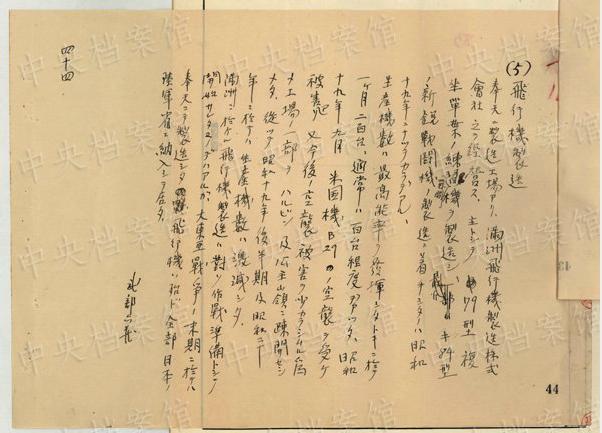 (5) 飛行機製造
奉天ニ製造工場アリ、満洲飛行機製造株式
會社之ヲ経営ス、主トシテ 79型複
坐單葉ノ練習機ヲ製造シ、一部キ84型
ノ新鋭戦闘機ノ製造ニ着手シタノハ昭和
十九年ニナツテカラデアル、
生産機数ハ最高能率ヲ発揮シタトキニ於テ
一ケ月二百台、通常ハ一百台程度デアツタ、昭和
十九年九月米国機B29ノ空襲ヲ受ケ
被害 又今後ノ空襲被害ヲ少カラシムル為
メ工場ノ一部ヲハルビン及公主嶺ニ疎開セシ
メタ、従ツテ昭和十九年ノ後半期及昭和二十
年ニ於テハ生産機数ハ激減シタ、
満洲ニ於ケル飛行機製造ハ対ソ作戦準備トシテ
開始サレタモノデハアルガ、大東亜戦争ノ末期ニ於テハ
奉天ニテ製造シタ飛行機ハ殆ド全部日本ノ
陸軍省ニ納入シテ居タ、
武部六蔵
四十四
44
中央档案馆